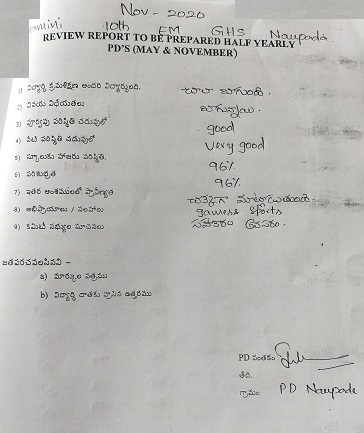 Nov - 2020
10th EM GHS Naupada
REVIEW REPORT TO BE PREPARED HALF YEARLY
PD'S (MAY & NOVEMBER)
1) విద్యార్థి క్రమశిక్షణ అందరి విద్యార్థులది. చాలా బాగుంది.
2) వినయ విధేయతలు బాగున్నాయి.
3) పూర్వపు పరిస్థితి చదువులో good
4) పేటి పరిస్థితి చదువులో Very good
5) స్కూలుకు హాజరు పరిస్థితి. 96%
6) పరిశుభ్రత 96%
7) ఇతర అంశములలో ప్రావీణ్యత చక్కగా మాట్లాడుతుంది.
8) అభిప్రాయాలు / సలహాలు Games Sports
9) కమిటీ సభ్యుల సూచనలు సహకారం అవసరం.
జతపరచవలసినవి –
a) మార్కుల పత్రము
b) విద్యార్థి దాతకు వ్రాసిన ఉత్తరము
PD సంతకం
తేది.
గ్రామం PD Naupada